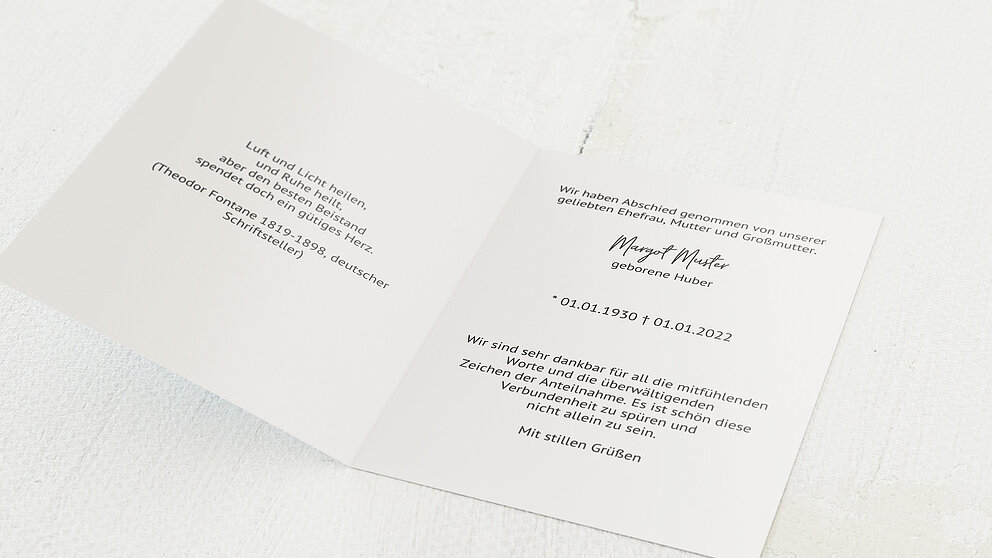 Luft und Licht heilen,
und Ruhe heilt,
aber den besten Beistand
spendet doch ein gütiges Herz.
(Theodor Fontane 1819-1898, deutscher
Schriftsteller)
Wir haben Abschied genommen von unserer
geliebten Ehefrau, Mutter und Großmutter.
Margot Muster
geborene Huber
* 01.01.1930 † 01.01.2022
Wir sind sehr dankbar für all die mitfühlenden
Worte und die überwältigenden
Zeichen der Anteilnahme. Es ist schön diese
Verbundenheit zu spüren und
nicht allein zu sein.
Mit stillen Grüßen